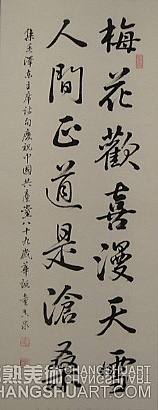 梅花歡喜漫天雪
人間正道是滄桑
集毛澤東主席詩句慶祝中國共產黨八十九歲華誕